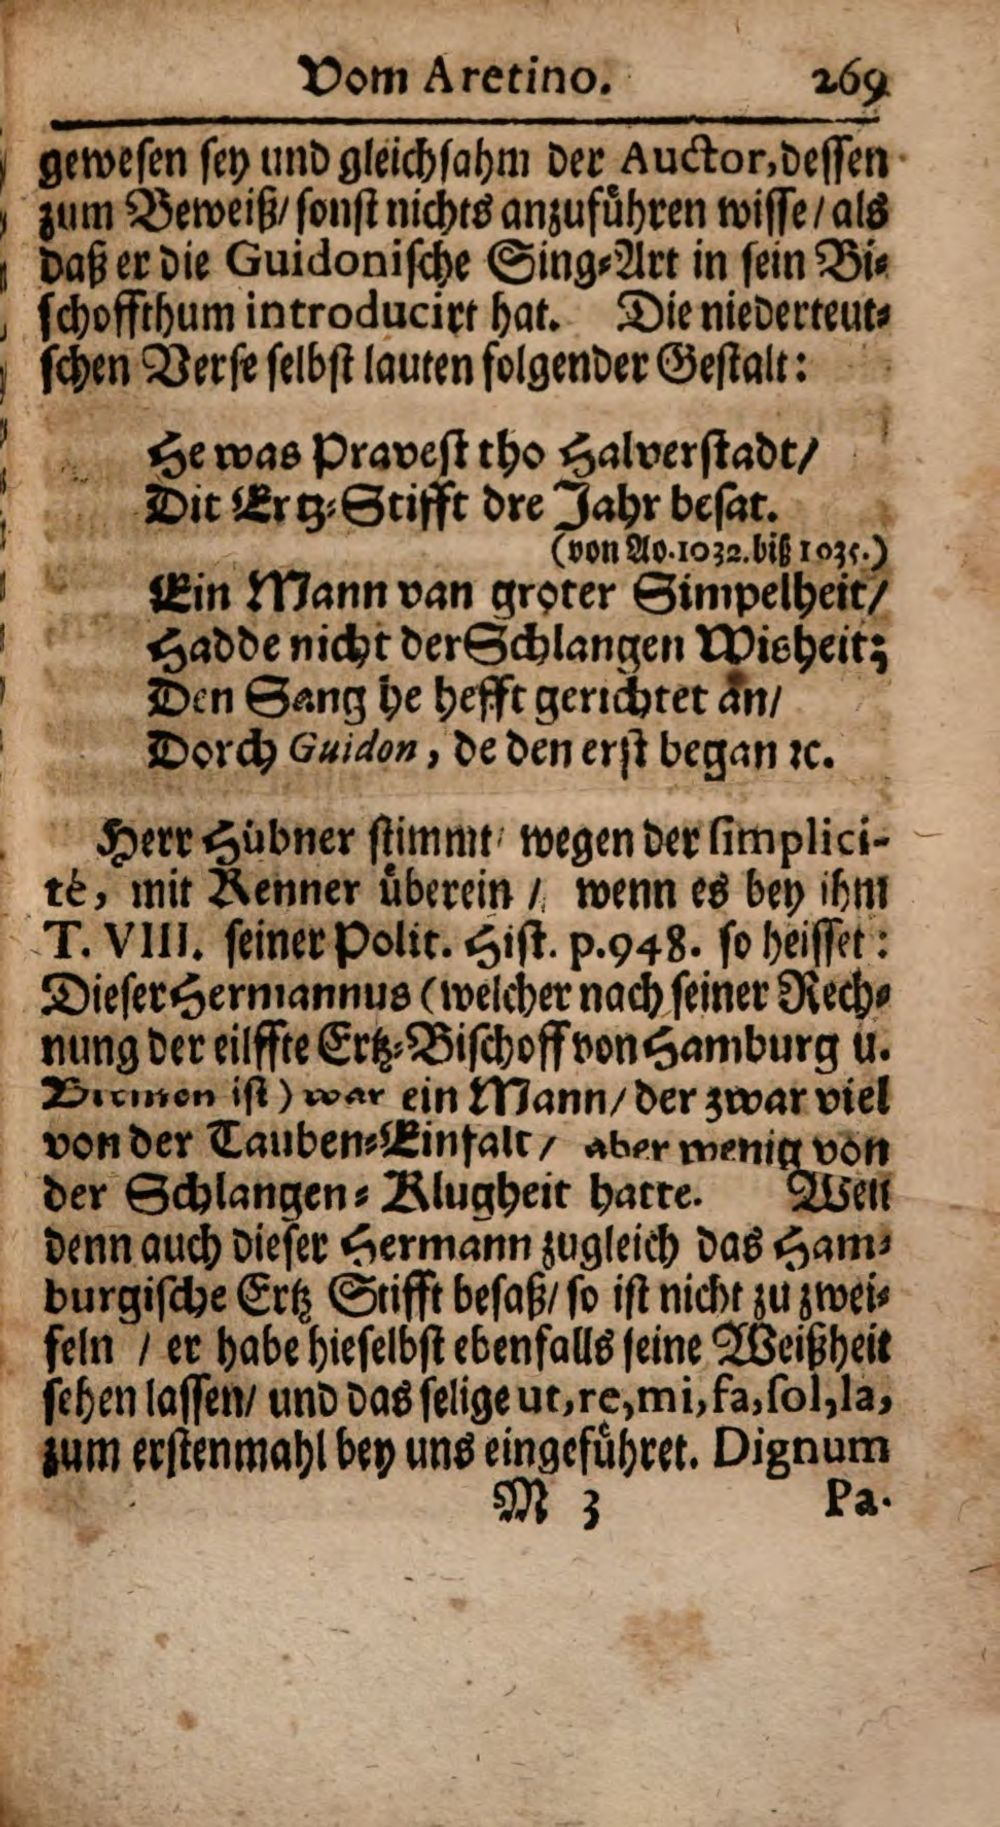 Vom Aretino. 269
gewesen sey und gleichsahm der Auctor, dessen
zum Beweiß/ sonst nichts anzuführen wisse / als
daß er die Guidonische Sing-Art in sein Bi-
schoffthum introducirt hat. Die niederteut-
schen Verse selbst lauten folgender Gestalt:
He was Pravest tho Halverstadt/
Dit Ertz-Stifft dre Jahr besat.
(von Ao. 1032. biß 1035.)
Ein Mann van groter Simpelheit/
Hadde nicht der Schlangen Wisheit;
Den Sang he hefft gerichtet an/
Dorch Guidon, de den erst began ꝛc.
Herr Hübner stimmt wegen der simplici-
té, mit Renner überein / wenn es bey ihm
T. VIII. seiner Polit. Hist. p. 948. so heisset:
Dieser Hermannus (welcher nach seiner Rech-
nung der eilffte Ertz-Bischoff von Hamburg u.
Bremen ist) war ein Mann/ der zwar viel
von der Tauben-Einfalt / aber wenig von
der Schlangen-Klugheit hatte. Weil
denn auch dieser Hermann zugleich das Ham-
burgische Ertz Stifft besaß/ so ist nicht zu zwei-
feln / er habe hieselbst ebenfalls seine Weißheit
sehen lassen/ und das selige ut, re, mi, fa, sol, la,
zum erstenmahl bey uns eingeführet. Dignum
M 3 Pa-